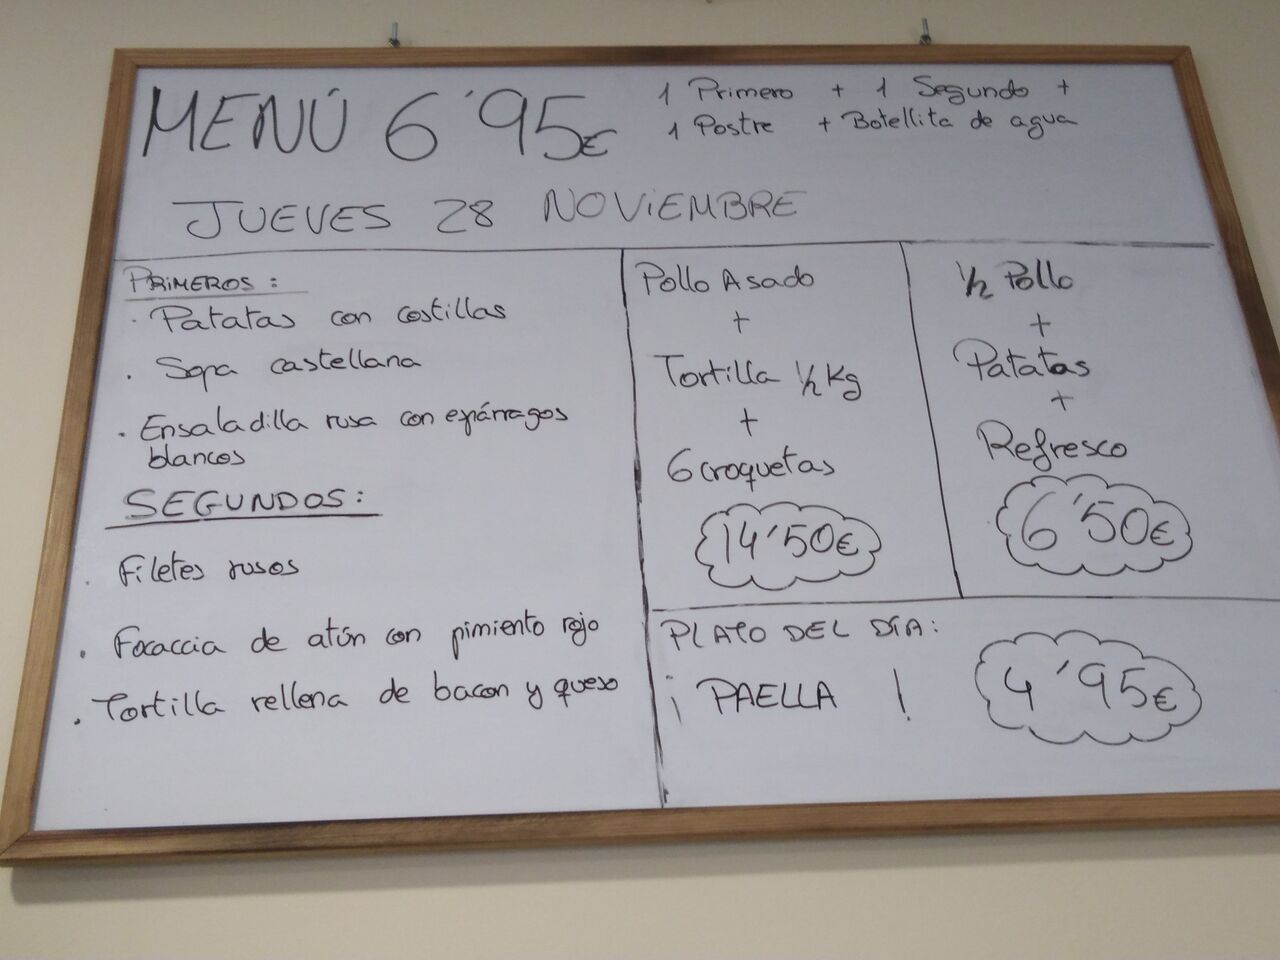 MENÚ 6'95€
1 Primero + 1 Segundo +
1 Postre + Botellita de agua
JUEVES 28 NOVIEMBRE
PRIMEROS:
· Patatas con costillas
· Sopa castellana
· Ensaladilla rusa con espárragos
blancos
SEGUNDOS:
· Filetes rusos
· Focaccia de atún con pimiento rojo
· Tortilla rellena de bacon y queso
Pollo Asado
+
Tortilla 1/2 Kg
+
6 croquetas
14'50€
1/2 Pollo
+
Patatas
+
Refresco
6'50€
PLATO DEL DÍA:
¡ PAELLA !
4'95€